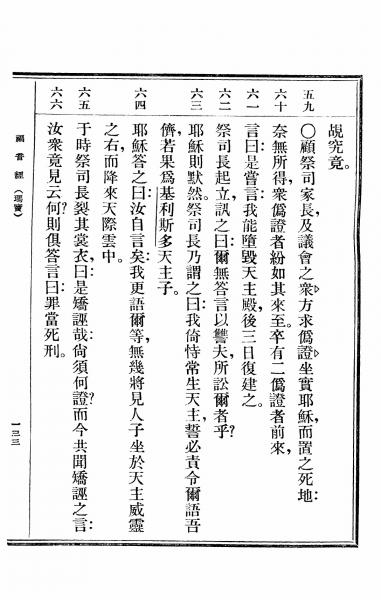 覘究竟。
五九 〇顧祭司家長，及議會之衆，方求僞證，坐實耶穌，而置之死地：
六十 奈無所得，衆僞證者紛如其來。至卒有二僞證者前來，
六一 言曰：是嘗言：我能墮毀天主殿，後三日復建之。
六二 祭司長起立，訊之曰：爾無答言以讐夫所訟爾者乎？
六三 耶穌則默然。祭司長乃謂之曰：我倚恃常生天主，誓必責令爾語吾
儕若果爲基利斯多天主子。
六四 耶穌答之曰：汝自言矣：我更語爾等，無幾將見人子坐於天主威靈
之右，而降來天際雲中。
六五 于時祭司長裂其裳衣，曰：是矯誣哉：尙須何證？而今共聞矯誣之言：
六六 汝衆竟見云何？則俱答言曰：罪當死刑。
福音經（瑪竇）
一三三